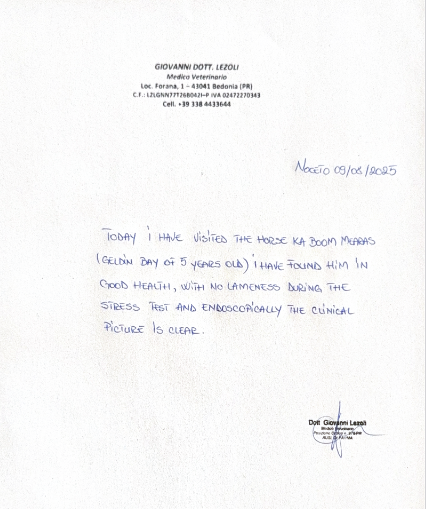 GIOVANNI DOTT. LEZOLI
Medico Veterinario
Loc. Forana, 1 – 43041 Bedonia (PR)
C.F.: LZLGNN77T26B042I–P IVA 02472270343
Cell. +39 338 4433644
NOCETO 09/08/2025
TODAY I HAVE VISITED THE HORSE KA BOOM MEARAS
(GELDIN BAY OF 5 YEARS OLD) I HAVE FOUND HIM IN
GOOD HEALTH, WITH NO LAMENESS DURING THE
STRESS TEST AND ENDOSCOPICALLY THE CLINICAL
PICTURE IS CLEAR.
Dott Giovanni Lezoli
Medico Veterinario